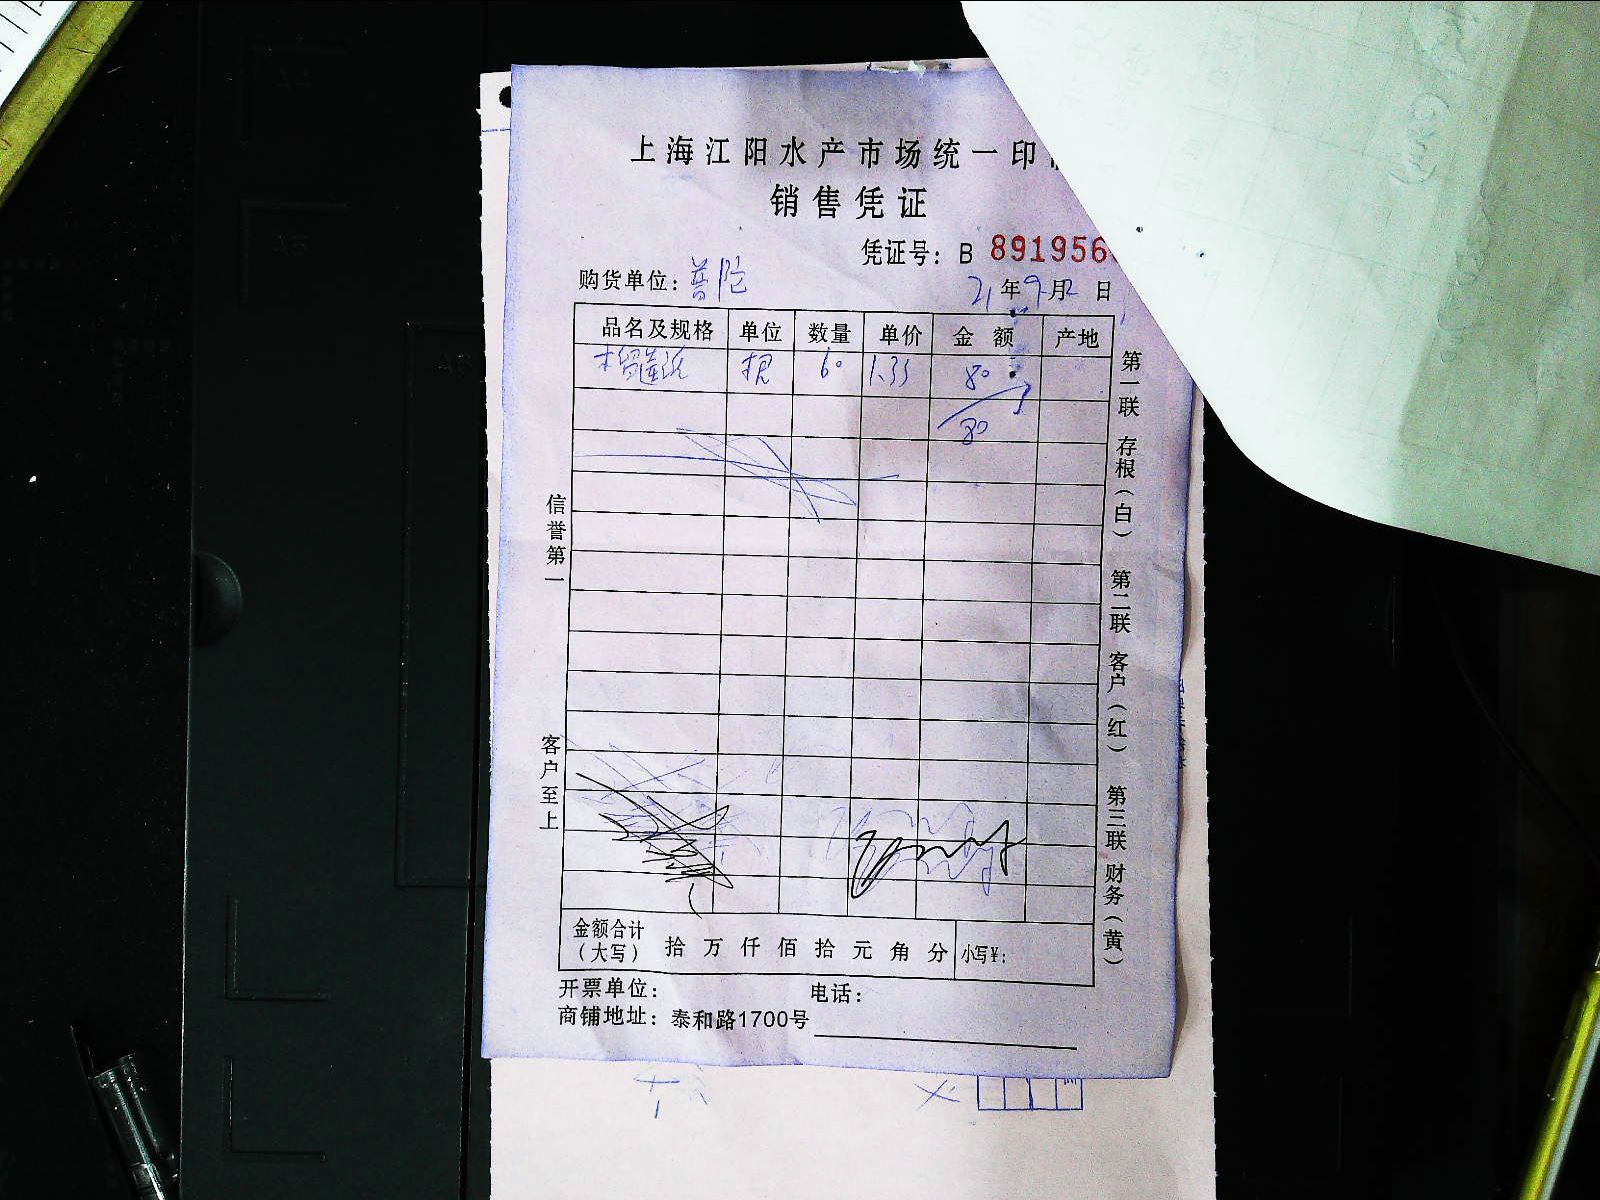 上海江阳水产市场统一印
销售凭证
凭证号：B 891956
购货单位：普陀
21年9月2日
品名及规格 单位 数量 单价 金额 产地
榴莲酥 根 60 1.33 80
80
信誉第一
客户至上
第一联 存根（白） 第二联 客户（红） 第三联 财务（黄）
金额合计（大写） 拾万仟佰拾元角分 小写¥：
开票单位： 电话：
商铺地址：泰和路1700号